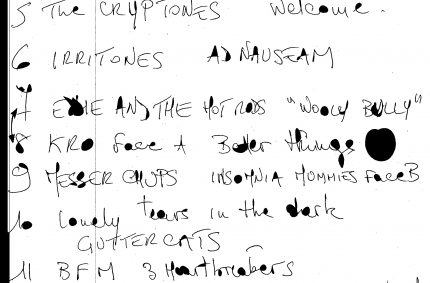 5 The CRYPTONES Welcome.
6 IRRITONES AD NAUSEAM
7 EDDIE AND THE HOT RODS "WOOLY BULLY"
8 KRO Face A Better things
9 MESSER CHUPS INSOMNIA MOMMIES Face B
10 Lonely tears in the dark
GUTTERCATS
11 BFM 3 Heartbreakers